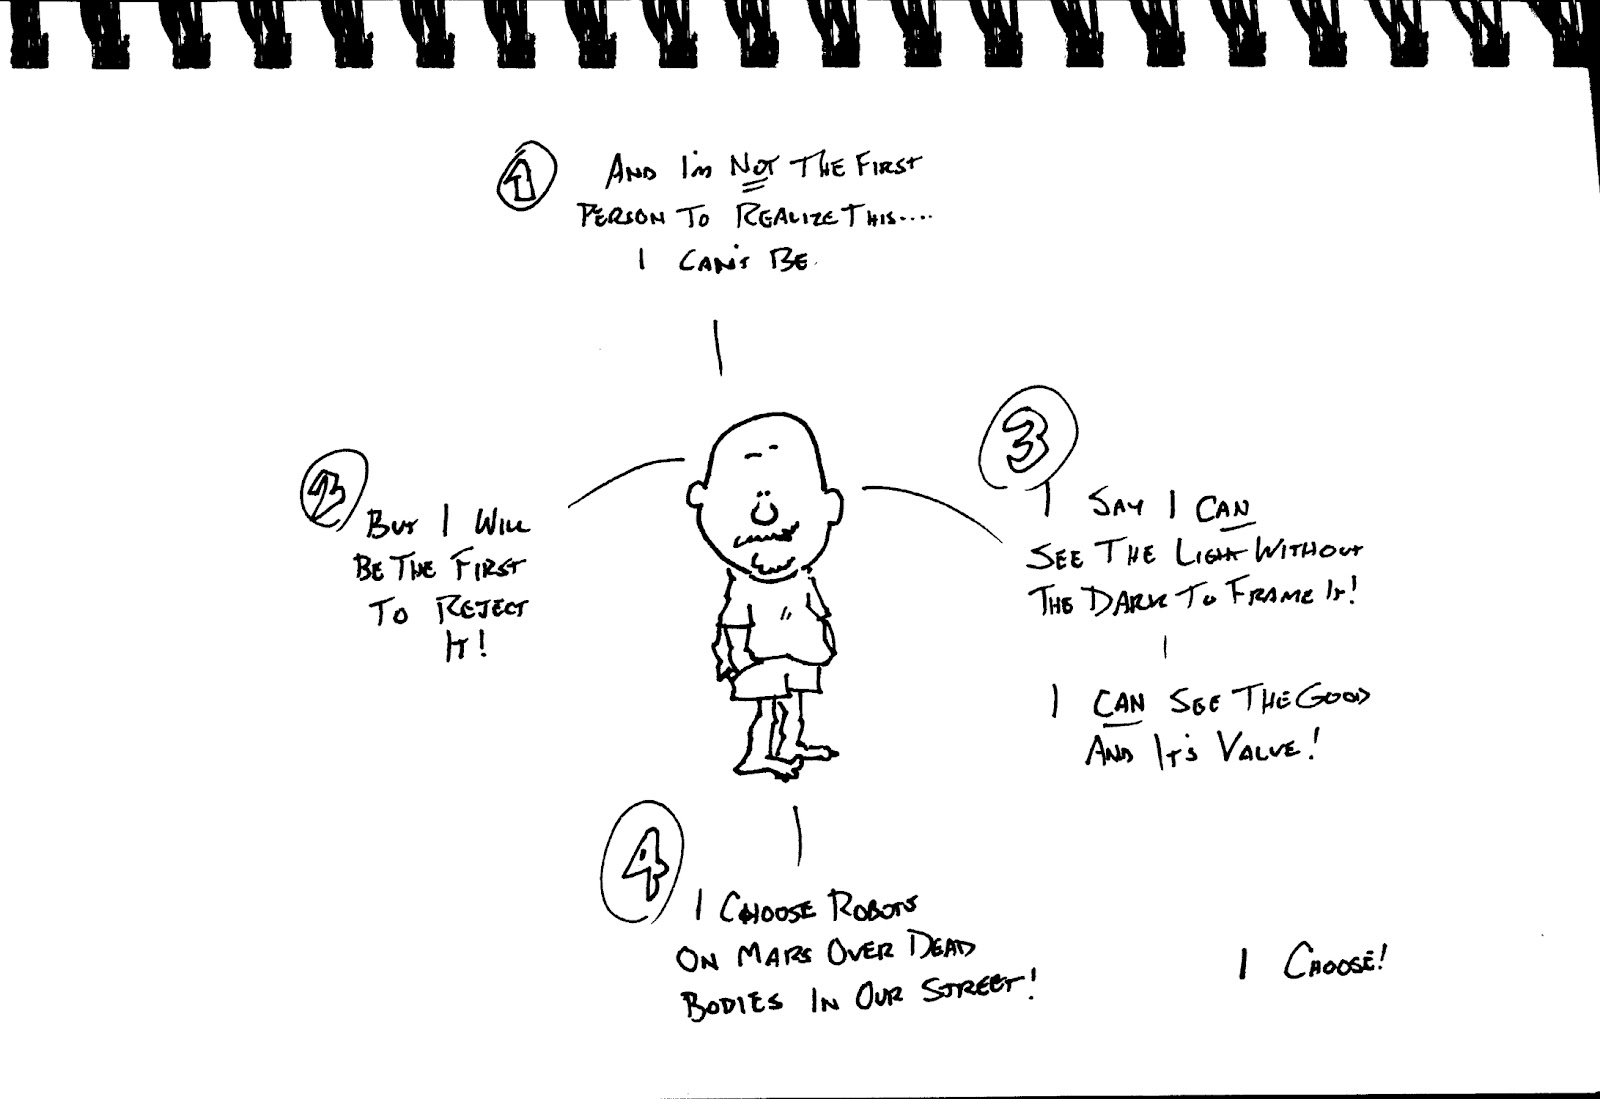 1
AND I'M NOT THE FIRST
PERSON TO REALIZE THIS....
I CAN'T BE.
2
BUT I WILL
BE THE FIRST
TO REJECT
IT!
3
I SAY I CAN
SEE THE LIGHT WITHOUT
THE DARK TO FRAME IT!
I CAN SEE THE GOOD
AND IT'S VALUE!
4
I CHOOSE ROBOTS
ON MARS OVER DEAD
BODIES IN OUR STREET!
I CHOOSE!